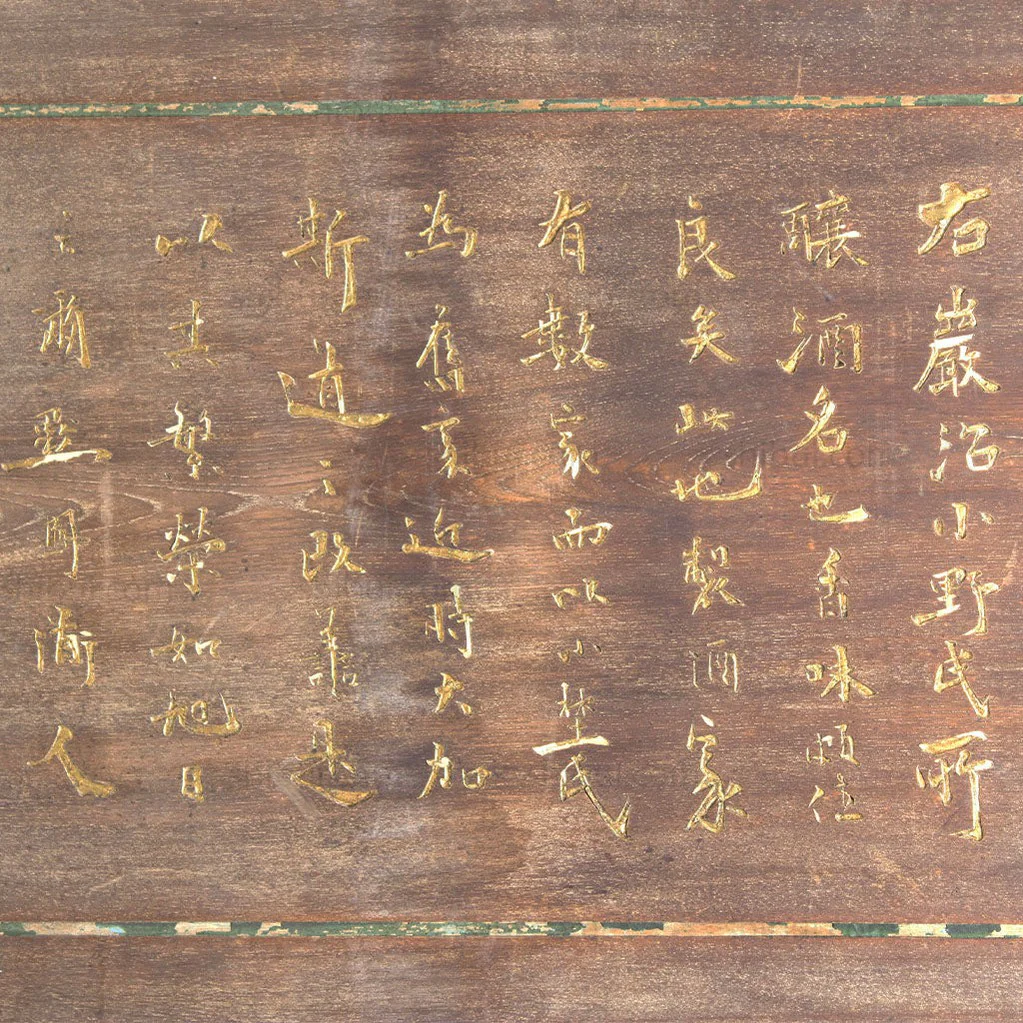 右巖沼小野氏所
釀酒名也香味頗佳
良矣此地製酒家
有數家而以小埜氏
為舊家近時大加
斯道之改善是
以其繁榮如旭日
云爾 人